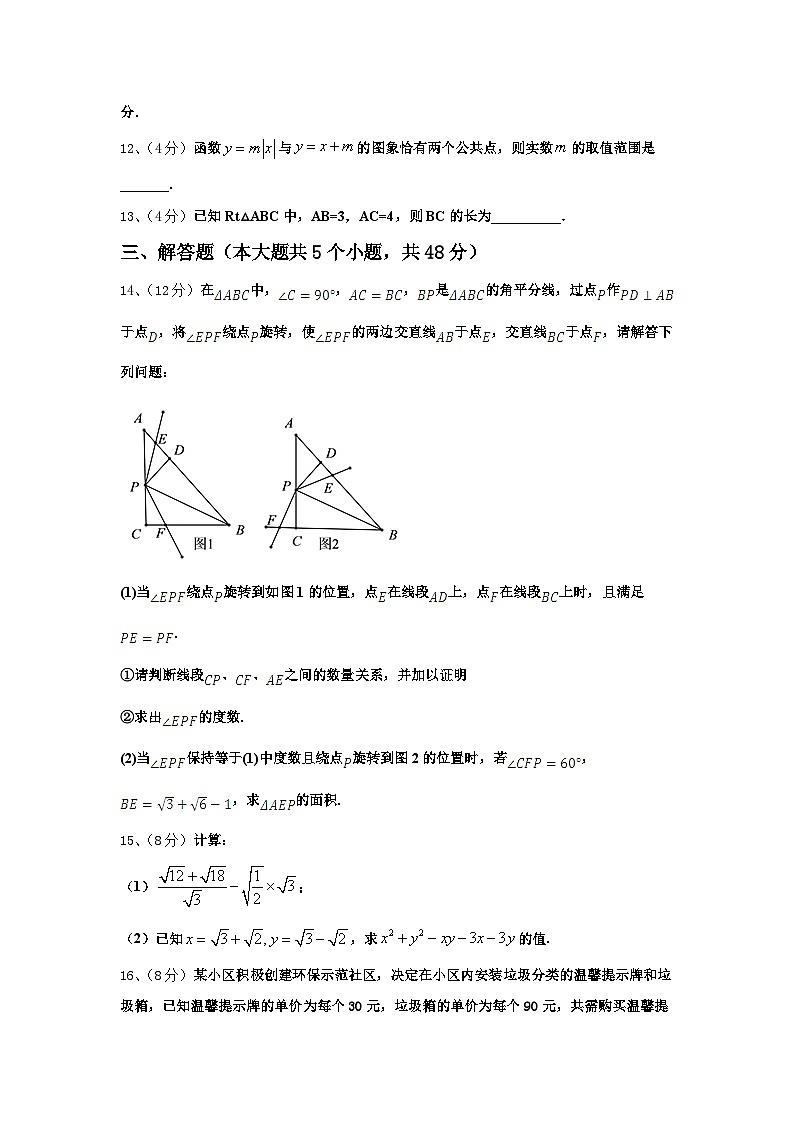 分.
12、（4分）函数 y = m|x| 与 y = x + m 的图象恰有两个公共点，则实数 m 的取值范围是
_______.
13、（4分）已知 Rt△ABC 中，AB=3，AC=4，则 BC 的长为__________.
三、解答题（本大题共5个小题，共48分）
14、（12分）在ΔABC中，∠C = 90°，AC = BC，BP是ΔABC的角平分线，过点P作PD ⊥ AB
于点D，将∠EPF绕点P旋转，使∠EPF的两边交直线AB于点E，交直线BC于点F，请解答下
列问题：
A
E
D
P
C
F
B
图1
A
D
P
E
F
C
B
图2
(1)当∠EPF绕点P旋转到如图1的位置，点E在线段AD上，点F在线段BC上时，且满足
PE = PF.
①请判断线段CP、CF、AE之间的数量关系，并加以证明
②求出∠EPF的度数.
(2)当∠EPF保持等于(1)中度数且绕点P旋转到图2的位置时，若∠CFP = 60°，
BE = √3 + √6 − 1，求ΔAEP的面积.
15、（8分）计算：
（1）(√12 + √18)/√3 − √(1/2) × √3；
（2）已知 x = √3 + √2, y = √3 − √2，求 x² + y² − xy − 3x − 3y 的值.
16、（8分）某小区积极创建环保示范社区，决定在小区内安装垃圾分类的温馨提示牌和垃
圾箱，已知温馨提示牌的单价为每个30元，垃圾箱的单价为每个90元，共需购买温馨提